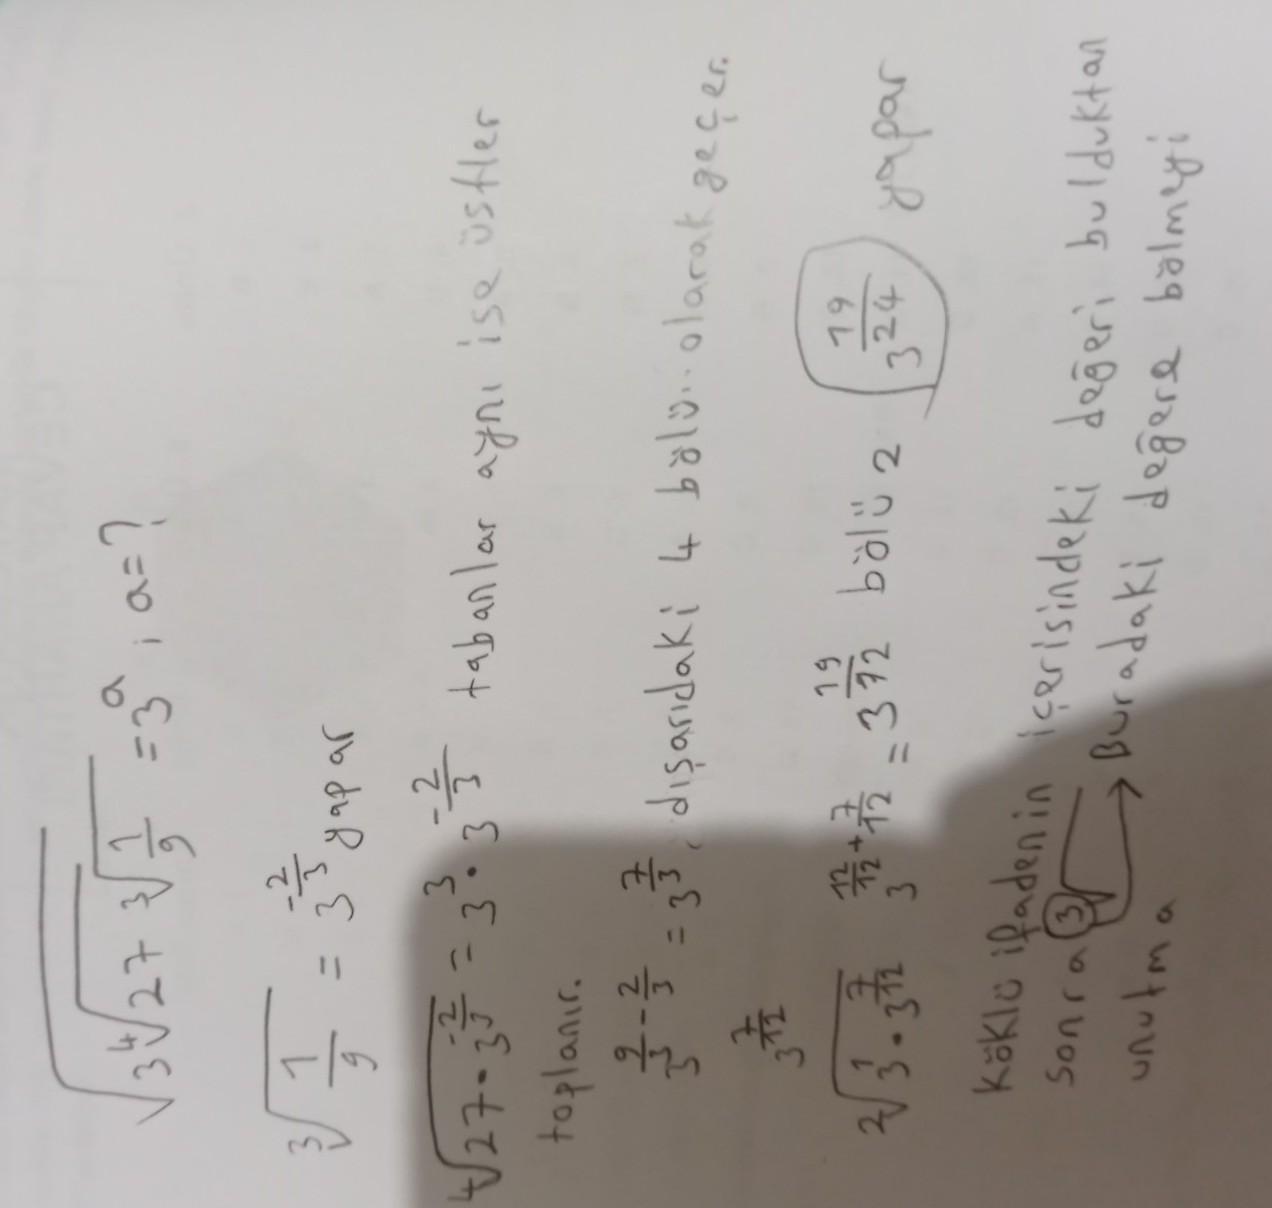 √(3 ⁴√(27 ³√(1/9))) = 3ᵃ ; a=?
³√(1/9) = 3^(-2/3) yapar
⁴√(27 · 3^(-2/3)) = 3³ · 3^(-2/3) tabanlar aynı ise üstler
toplanır.
3^(9/3 - 2/3) = 3^(7/3), dışarıdaki 4 bölü.. olarak geçer.
3^(7/12)
²√(3¹ · 3^(7/12)) 3^(12/12 + 7/12) = 3^(19/12) bölü 2 3^(19/24) yapar
Köklü ifadenin içerisindeki değeri bulduktan
sonra ³√ → Buradaki değere bölmeyi
unutma